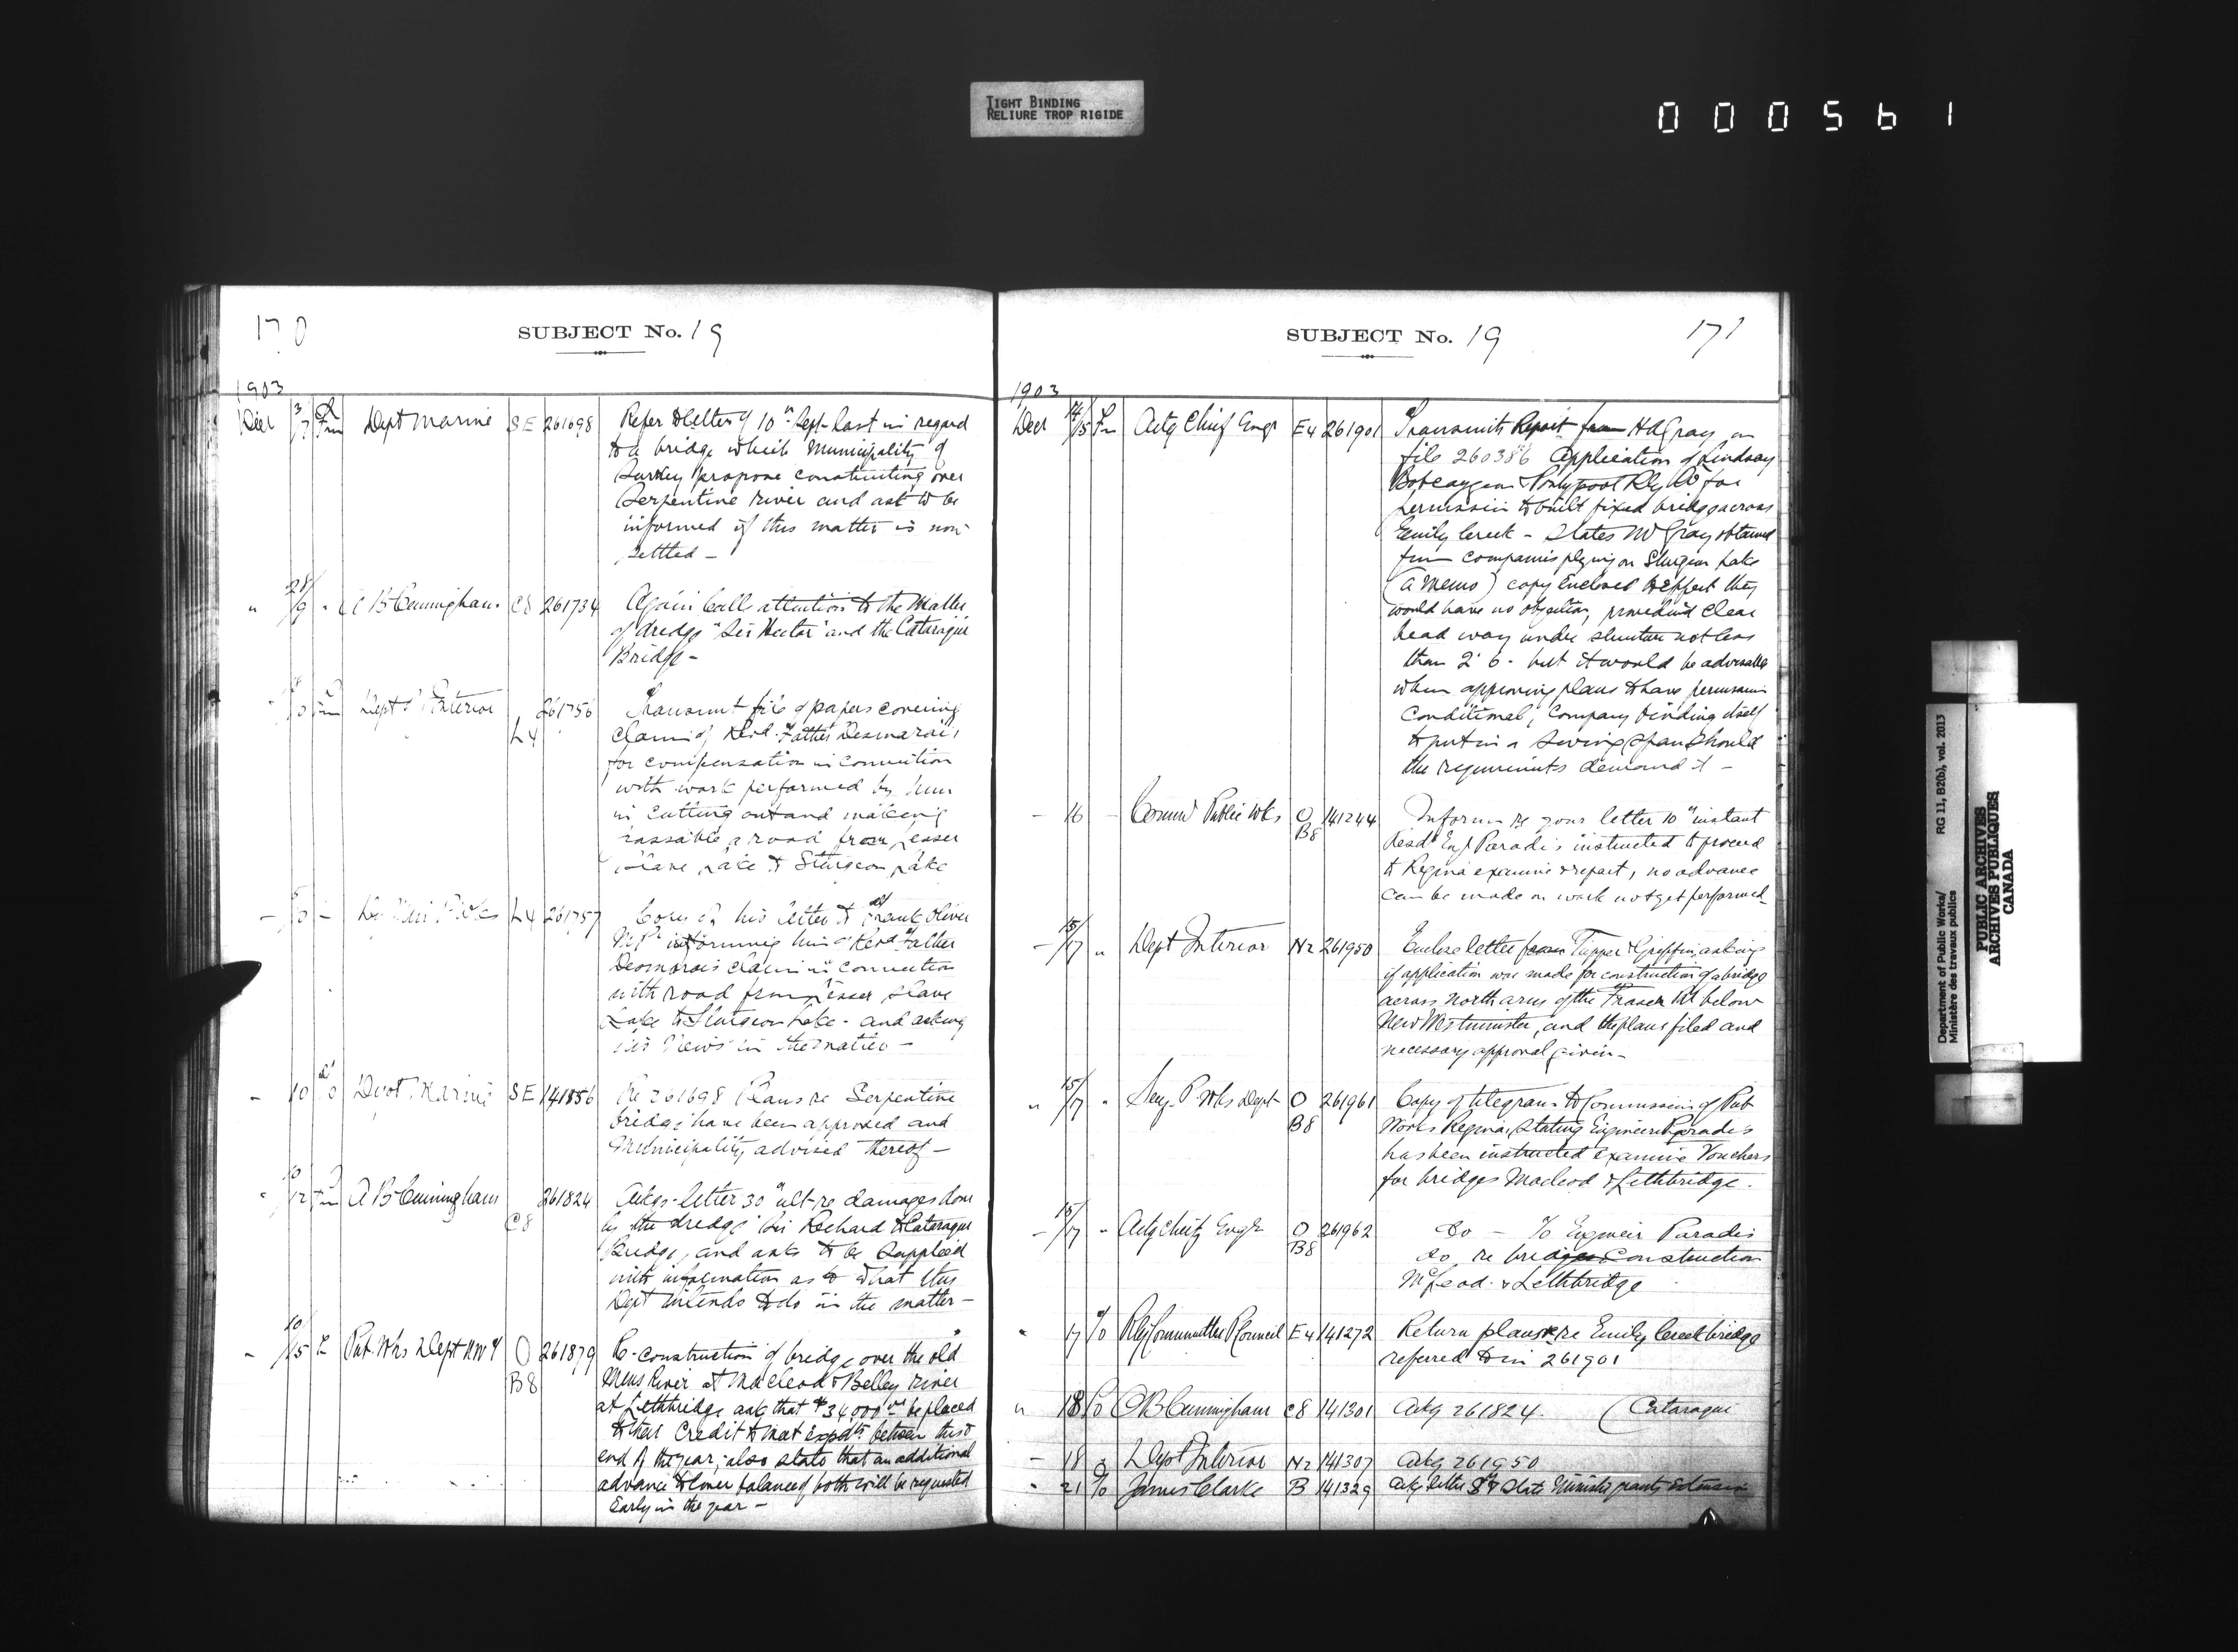 TIGHT BINDING
RELIURE TROP RIGIDE
000561
170
SUBJECT No. 19
1903
Decr 3/7 Fm Dept Marine SE 261698 Refer to letter of 10" Sept. last in regard
to a bridge which Municipality of
Surrey propose constructing over
Serpentine river and ask to be
informed if this matter is now
settled -
" 28/9 " A B Cunningham C8 261734 Again Calls attention to the Matter
of dredge "Sir Hector" and the Cataraqui
Bridge -
Dept Interior L4 261756 Transmit file of papers covering
Claim of Revd. Father Desmarais
for compensation in connection
with work performed by him
in Cutting out and making
passable a road from Lesser
Slave Lake to Sturgeon Lake
L4 261757 Copy of his letter to Frank Oliver
M.P. informing him of Revd Father
Desmarais claim in connection
with road from Lesser Slave
Lake to Sturgeon Lake - and asking
his views in the matter -
- 10 Dept. Marine SE 141856 Re 261698 Plans re Serpentine
bridge have been approved and
Municipality advised thereof -
" 10/12 Fm A B Cunningham C8 261824 Ackgs. letter 30" ult. re damages done
by the dredge Sir Richard to Cataraqui
Bridge, and asks to be supplied
with information as to what this
Dept intends to do in the matter -
- 10/15 Pub. Wks Dept NWT O B8 261879 Re-construction of bridge over the old
Mens River at Macleod & Belley River
at Lethbridge ask that $34,000 be placed
to their Credit to meet expdts between this &
end of the year; also state that an additional
advance to cover balance of both will be requested
Early in the year -
SUBJECT No. 19
171
1903
Decr 14/15 Fm Actg Chief Engr E4 261901 Transmits Report from H A Gray on
file 260386 Application of Lindsay
Bobcaygeon & Pontypool Rly Co for
permission to built fixed bridge across
Emily Creek - States Mr Gray obtained
from companies plying on Sturgeon Lake
(a memo) copy Enclosed to effect they
would have no objection, provided clear
head way under structure not less
than 2' 6 - but it would be advisable
when approving plans to have permission
Conditional, Company binding itself
to put in a Swing Span Should
the requirements demand it -
- 16 - Commr Public Wks O B8 141244 Inform re your letter 10" instant
Resdt Engr Paradis instructed to proceed
to Regina examine & report, no advance
can be made on work not yet performed
- 15/17 " Dept Interior N2 261950 Enclose letter from Tupper & Griffin, asking
if application was made for construction of a bridge
across North arm of the Fraser Rit below
New Westminster, and the plans filed and
necessary approval given -
" 15/17 " Secy. P. Wks Dept O B8 261961 Copy of telegram to Commission of Pub
Works Regina, stating Engineer Paradis
has been instructed examine Vouchers
for bridges Macleod & Lethbridge.
- 15/17 " Actg Chief Engr O B8 261962 do - To Engineer Paradis
do re bridges Construction
McLeod. & Lethbridge
" 17 Rly Committee P Council E4 141272 Return plans re Emily Creek bridge
referred to in 261901
" 18 A B Cunningham C8 141301 Ackg 261824. (Cataraqui
- 18 Dept Interior N2 141307 Ackg 261950
" 21 James Clarke B 141329 Ackg letter state Minister grants Extension
Department of Public Works/ RG 11, B2(b), vol. 2013
Ministère des travaux publics
PUBLIC ARCHIVES
ARCHIVES PUBLIQUES
CANADA